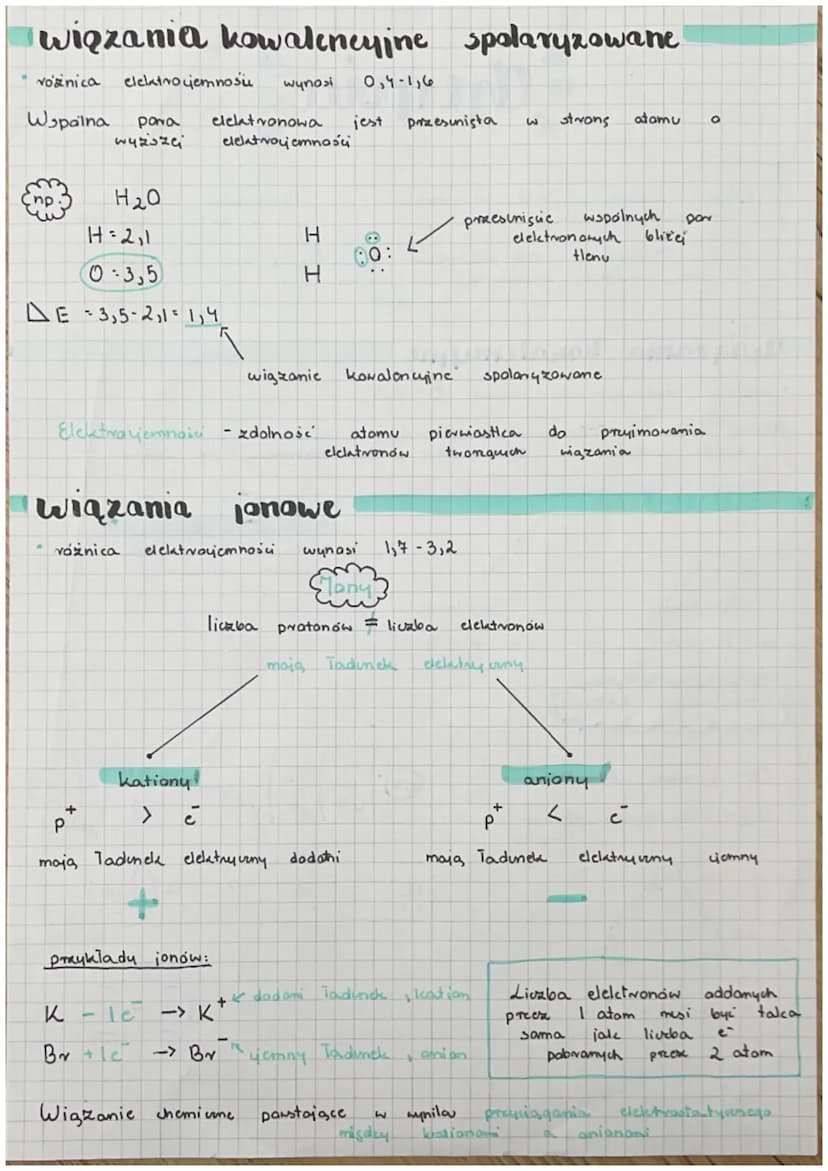 wiązania kowalencyjne spolaryzowane
• różnica elektroujemności wynosi 0,4-1,6
Wspólna para elektronowa jest przesunięta w stronę atomu o
wyższej elektroujemności
np. H₂O
H = 2,1
O = 3,5
H
H
:O:
przesunięcie wspólnych par
elektronowych bliżej
tlenu
ΔE = 3,5-2,1 = 1,4
wiązanie kowalencyjne spolaryzowane
Elektroujemność - zdolność atomu pierwiastka do przyjmowania
elektronów tworzących wiązania
wiązania jonowe
• różnica elektroujemności wynosi 1,7 - 3,2
Jony
liczba protonów ≠ liczba elektronów
mają ładunek elektryczny
kationy
aniony
p⁺ > e⁻
p⁺ < e⁻
mają ładunek elektryczny dodatni
mają ładunek elektryczny ujemny
+
−
przykłady jonów:
K - 1e⁻ → K⁺ dodatni ładunek, kation
Br + 1e⁻ → Br⁻ ujemny ładunek, anion
Liczba elektronów oddanych
przez 1 atom musi być taka
sama jak liczba e⁻
pobranych przez 2 atom
Wiązanie chemiczne powstające w wyniku przyciągania elektrostatycznego
między kationami a anionami